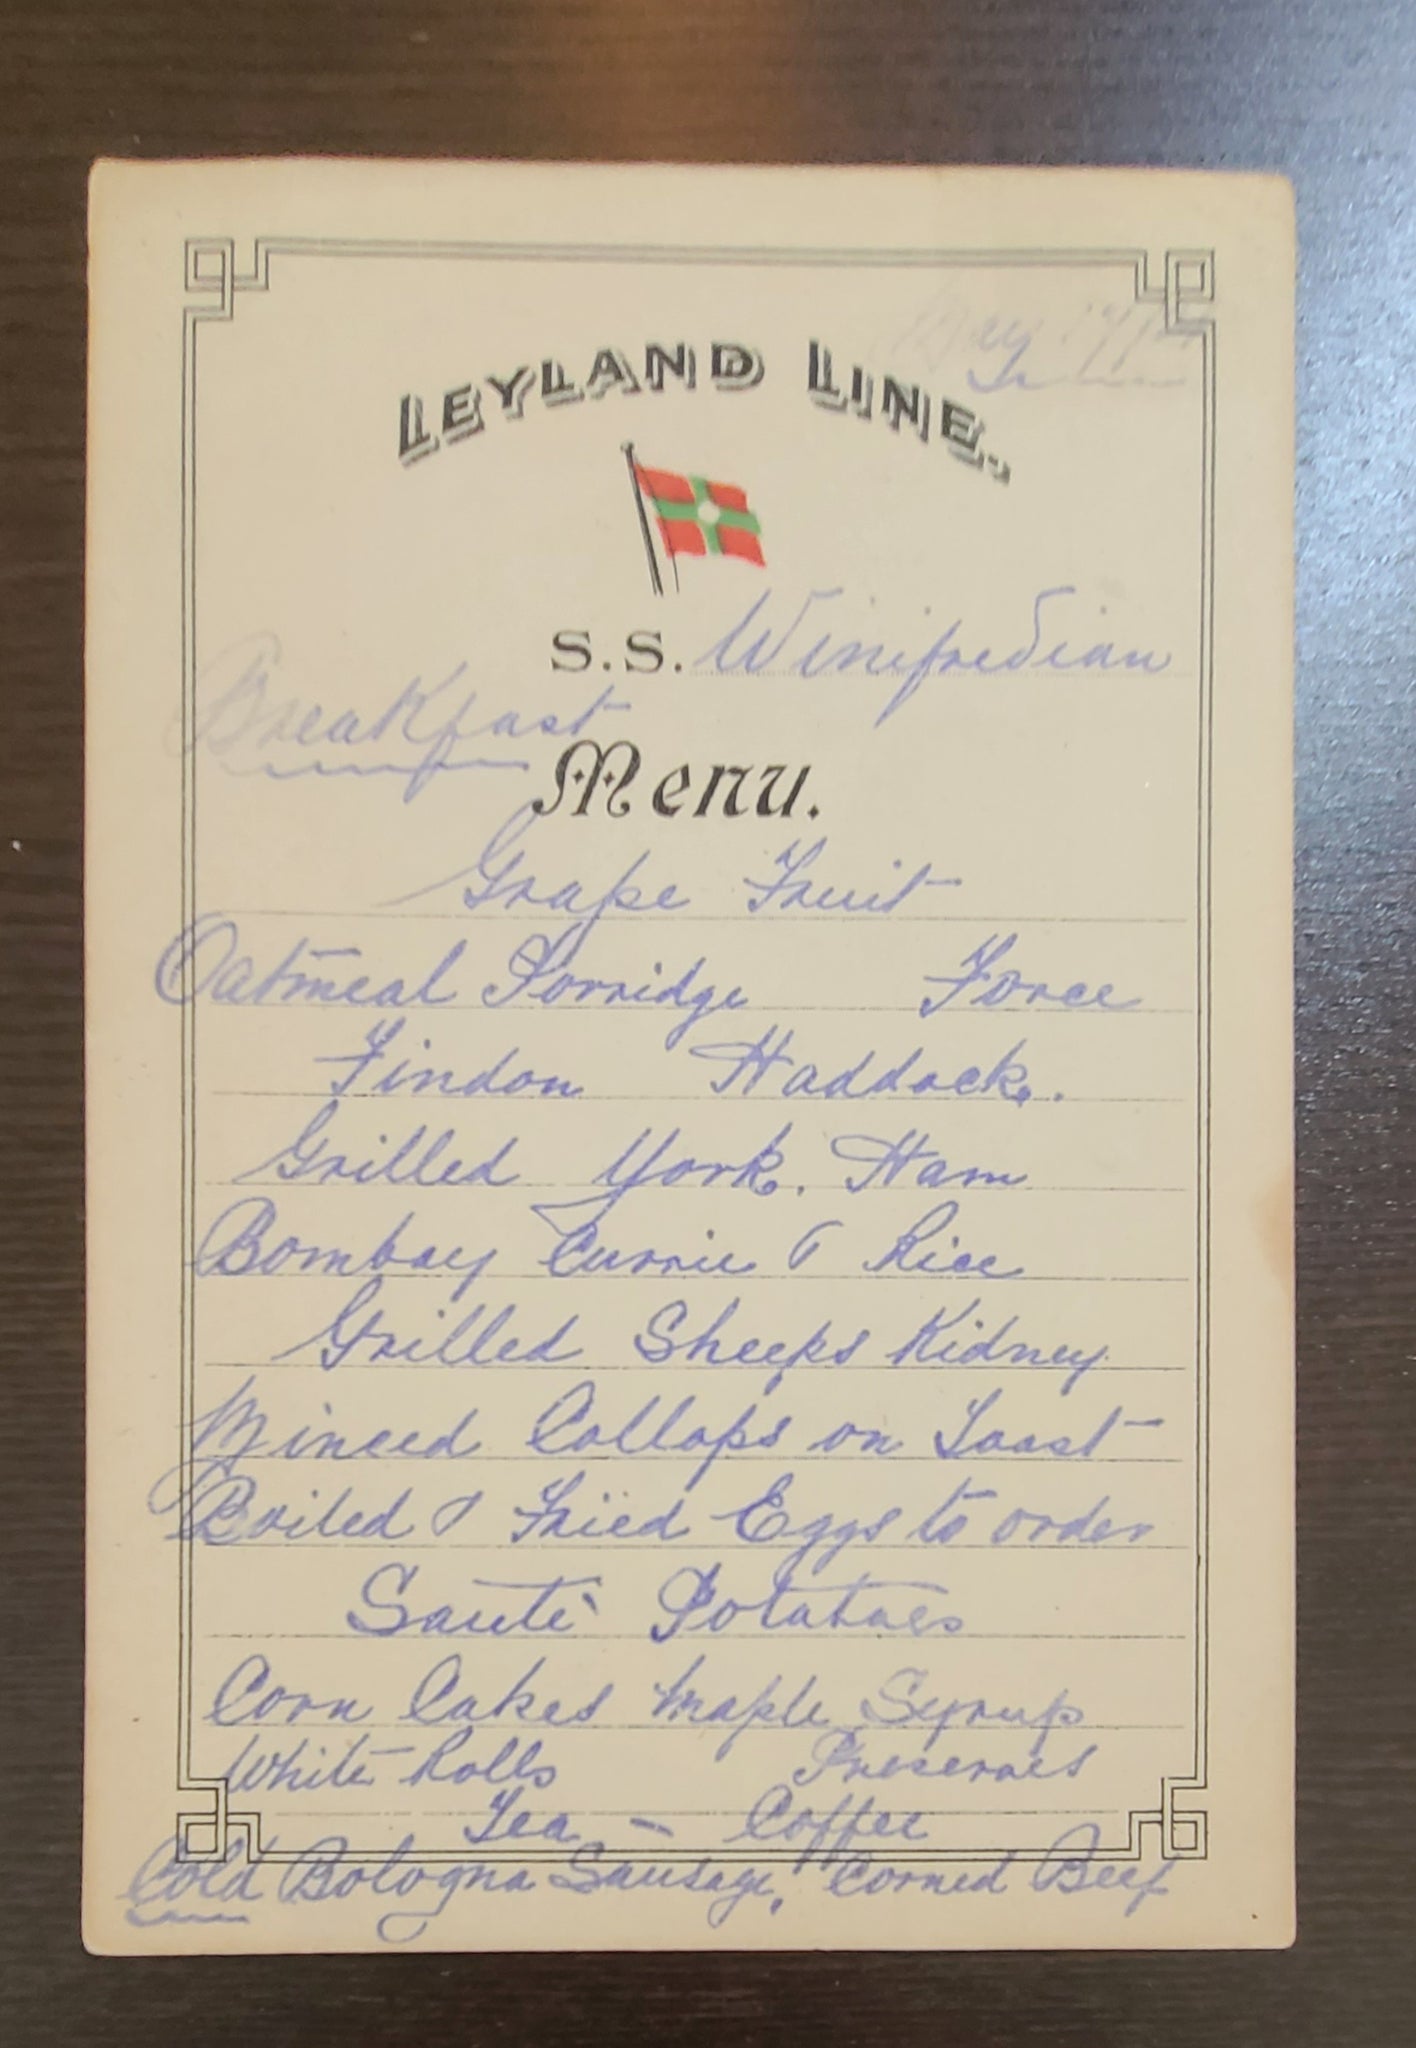 LEYLAND LINE.
S.S. Winifredian
Breakfast
Menu.
Grape Fruit
Oatmeal Porridge Force
Findon Haddock.
Grilled York. Ham
Bombay Currie & Rice
Grilled Sheeps Kidney
Minced Collops on Toast
Boiled & Fried Eggs to order
Sautè Potatoes
Corn Cakes Maple Syrup
White Rolls Preserves
Tea - Coffee
Cold Bologna Sausage, Corned Beef